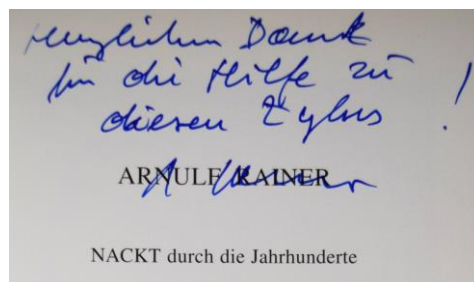 Herzlichen Dank
für die Hilfe zu
diesen Zyklus !
ARNULF RAINER
A Rainer
NACKT durch die Jahrhunderte